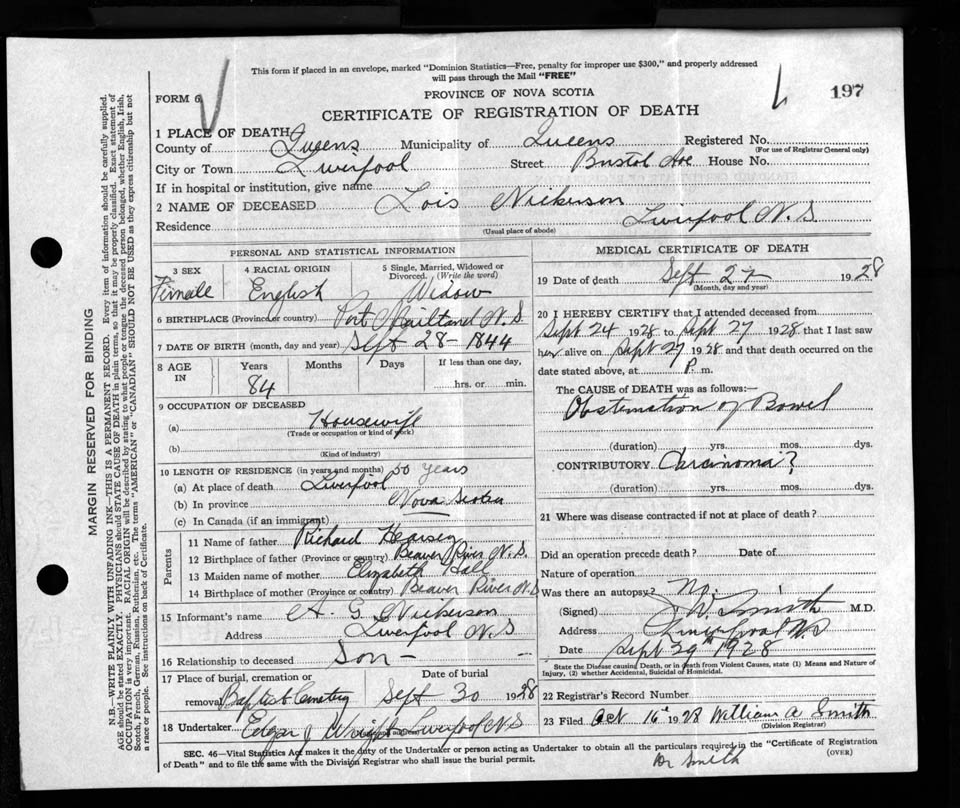 This form if placed in an envelope, marked "Dominion Statistics—Free, penalty for improper use $300," and properly addressed
will pass through the Mail "FREE"
FORM 6
PROVINCE OF NOVA SCOTIA
197
CERTIFICATE OF REGISTRATION OF DEATH
1 PLACE OF DEATH
County of Queens Municipality of Queens Registered No.
(For use of Registrar General only)
City or Town Liverpool Street Bristol Ave House No.
If in hospital or institution, give name
2 NAME OF DECEASED Lois Nickerson
Residence Liverpool N.S.
(Usual place of abode)
PERSONAL AND STATISTICAL INFORMATION
3 SEX 4 RACIAL ORIGIN 5 Single, Married, Widowed or
Divorced. (Write the word)
Female English Widow
6 BIRTHPLACE (Province or country) Port Maitland N.S
7 DATE OF BIRTH (month, day and year) Sept 28 - 1844
8 AGE IN Years Months Days If less than one day,
84 hrs. or min.
9 OCCUPATION OF DECEASED
(a) Housewife
(Trade or occupation or kind of work)
(b)
(Kind of industry)
10 LENGTH OF RESIDENCE (in years and months) 50 years
(a) At place of death Liverpool
(b) In province Nova Scotia
(c) In Canada (if an immigrant)
Parents
11 Name of father Richard
12 Birthplace of father (Province or country) Beaver River N.S.
13 Maiden name of mother Elizabeth Hall
14 Birthplace of mother (Province or country) Beaver River N.S
15 Informant's name A. G. Nickerson
Address Liverpool N.S
16 Relationship to deceased Son -
17 Place of burial, cremation or removal Date of burial
Baptist Cemetery Sept 30 1928
18 Undertaker Edgar J Wright Liverpool N.S
MEDICAL CERTIFICATE OF DEATH
19 Date of death Sept 27 1928
(Month, day and year)
20 I HEREBY CERTIFY that I attended deceased from
Sept 24 1928 to Sept 27 1928 that I last saw
her alive on Sept 27 1928 and that death occurred on the
date stated above, at P. m.
The CAUSE of DEATH was as follows:—
of Bowel
(duration) yrs. mos. dys.
CONTRIBUTORY Carcinoma?
(duration) yrs. mos. dys.
21 Where was disease contracted if not at place of death?
Did an operation precede death? Date of
Nature of operation
Was there an autopsy? No.
(Signed) Smith M.D.
Address Liverpool NS
Date Sept 29th 1928
State the Disease causing Death, or in death from Violent Causes, state (1) Means and Nature of
Injury, (2) whether Accidental, Suicidal or Homicidal.
22 Registrar's Record Number
23 Filed Oct 16th 1928 William A Smith
(Division Registrar)
SEC. 46—Vital Statistics Act makes it the duty of the Undertaker or person acting as Undertaker to obtain all the particulars required in the "Certificate of Registration
of Death" and to file the same with the Division Registrar who shall issue the burial permit.
(OVER)
Dr Smith
MARGIN RESERVED FOR BINDING
N.B.—WRITE PLAINLY WITH UNFADING INK—THIS IS A PERMANENT RECORD. Every item of information should be carefully supplied.
AGE should be stated EXACTLY. PHYSICIANS should STATE CAUSE OF DEATH in plain terms, so that it may be properly classified. Exact statement of
OCCUPATION is very important. RACIAL ORIGIN will be described by stating to what people or tongue the deceased person belonged, whether English, Irish,
Scotch, French, German, Russian, Ruthenian, etc. The terms "AMERICAN" or "CANADIAN" SHOULD NOT BE USED as they express citizenship but not
a race or people. See instructions on back of Certificate.